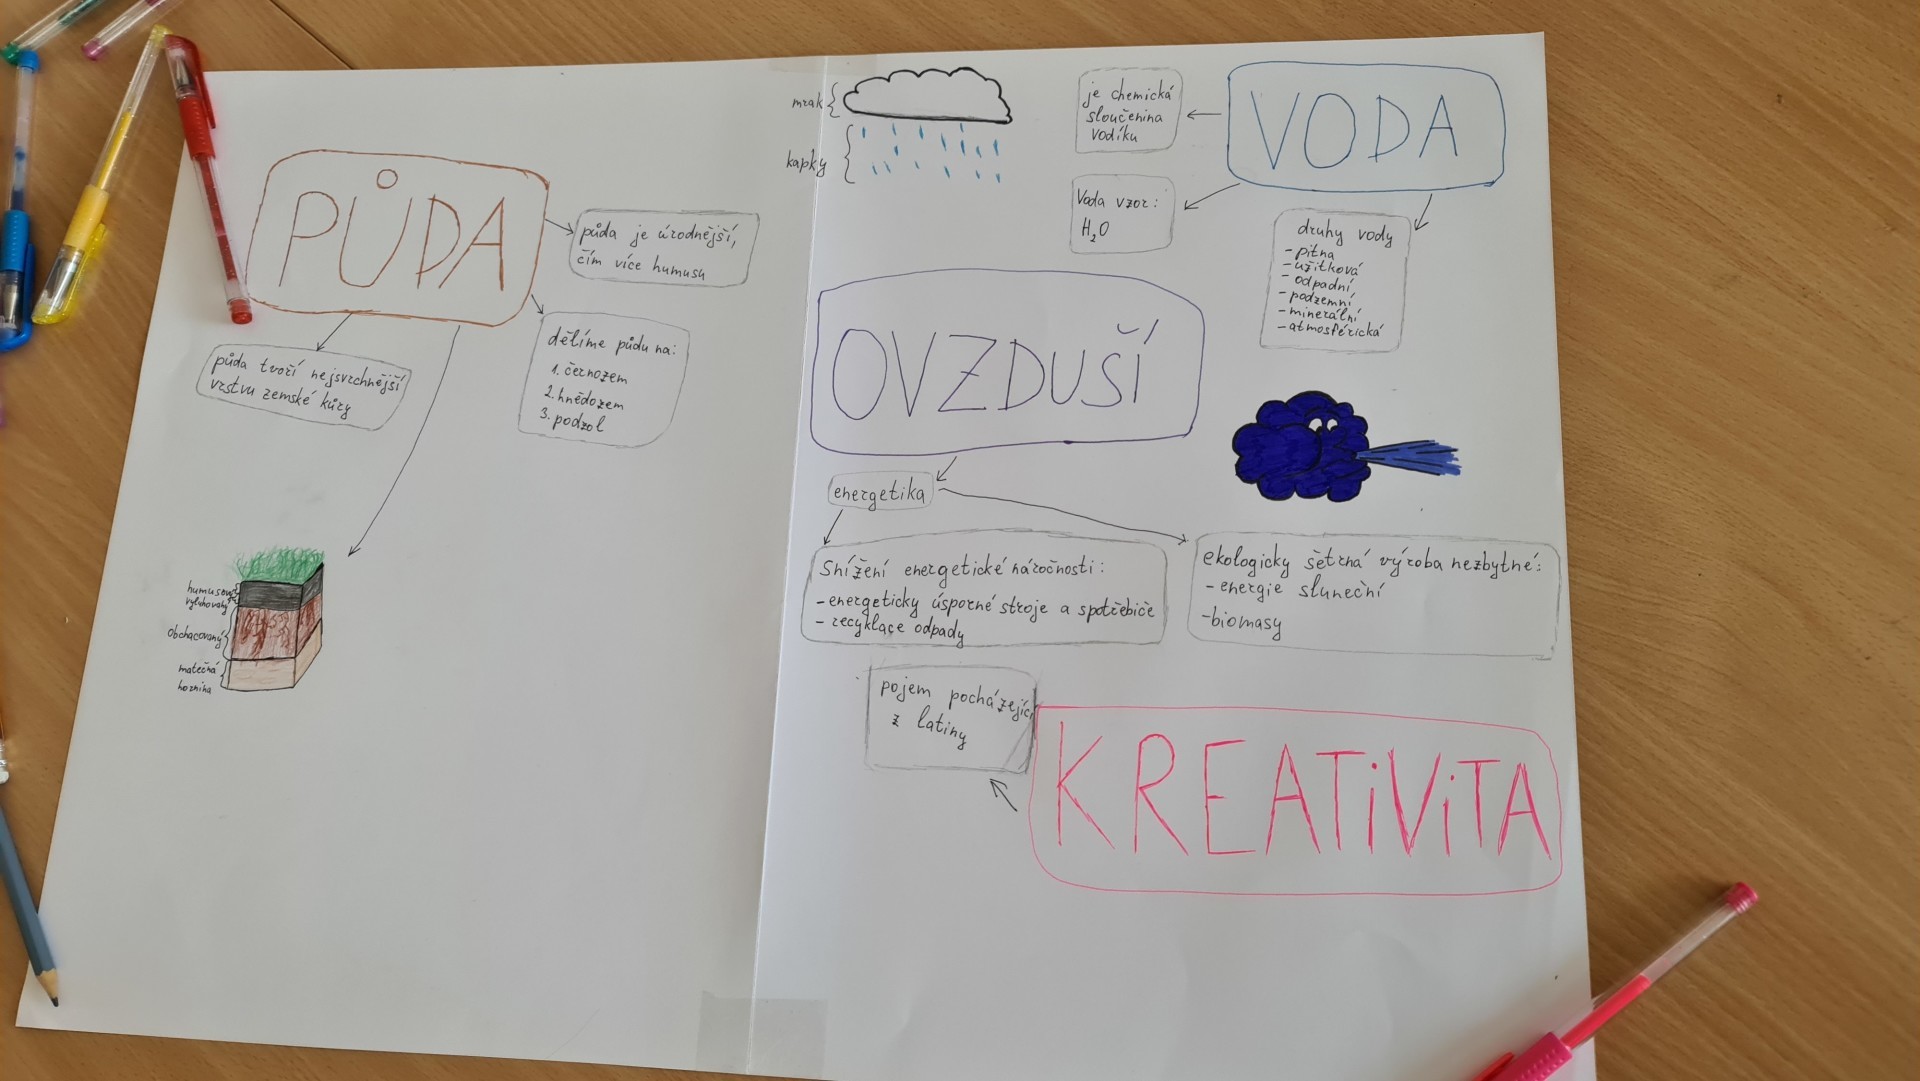 PŮDA
půda je úrodnější,
čím více humusu
dělíme půdu na:
1. černozem
2. hnědozem
3. podzol
půda tvoří nejsvrchnější
vrstvu zemské kůry
obhacovaný
matečná
hornina
mrak
kapky
VODA
je chemická
sloučenina
vodíku
Voda vzor:
H₂O
druhy vody
- pitna
- užitková
- odpadní
- podzemní
- minerální
- atmosférická
OVZDUŠÍ
energetika
Snížení energetické náročnosti:
- energeticky úsporné stroje a spotřebiče
- recyklace odpady
ekologicky šetrná výroba nezbytné:
- energie sluneční
- biomasy
KREATiViTA
pojem pocházející
z latiny